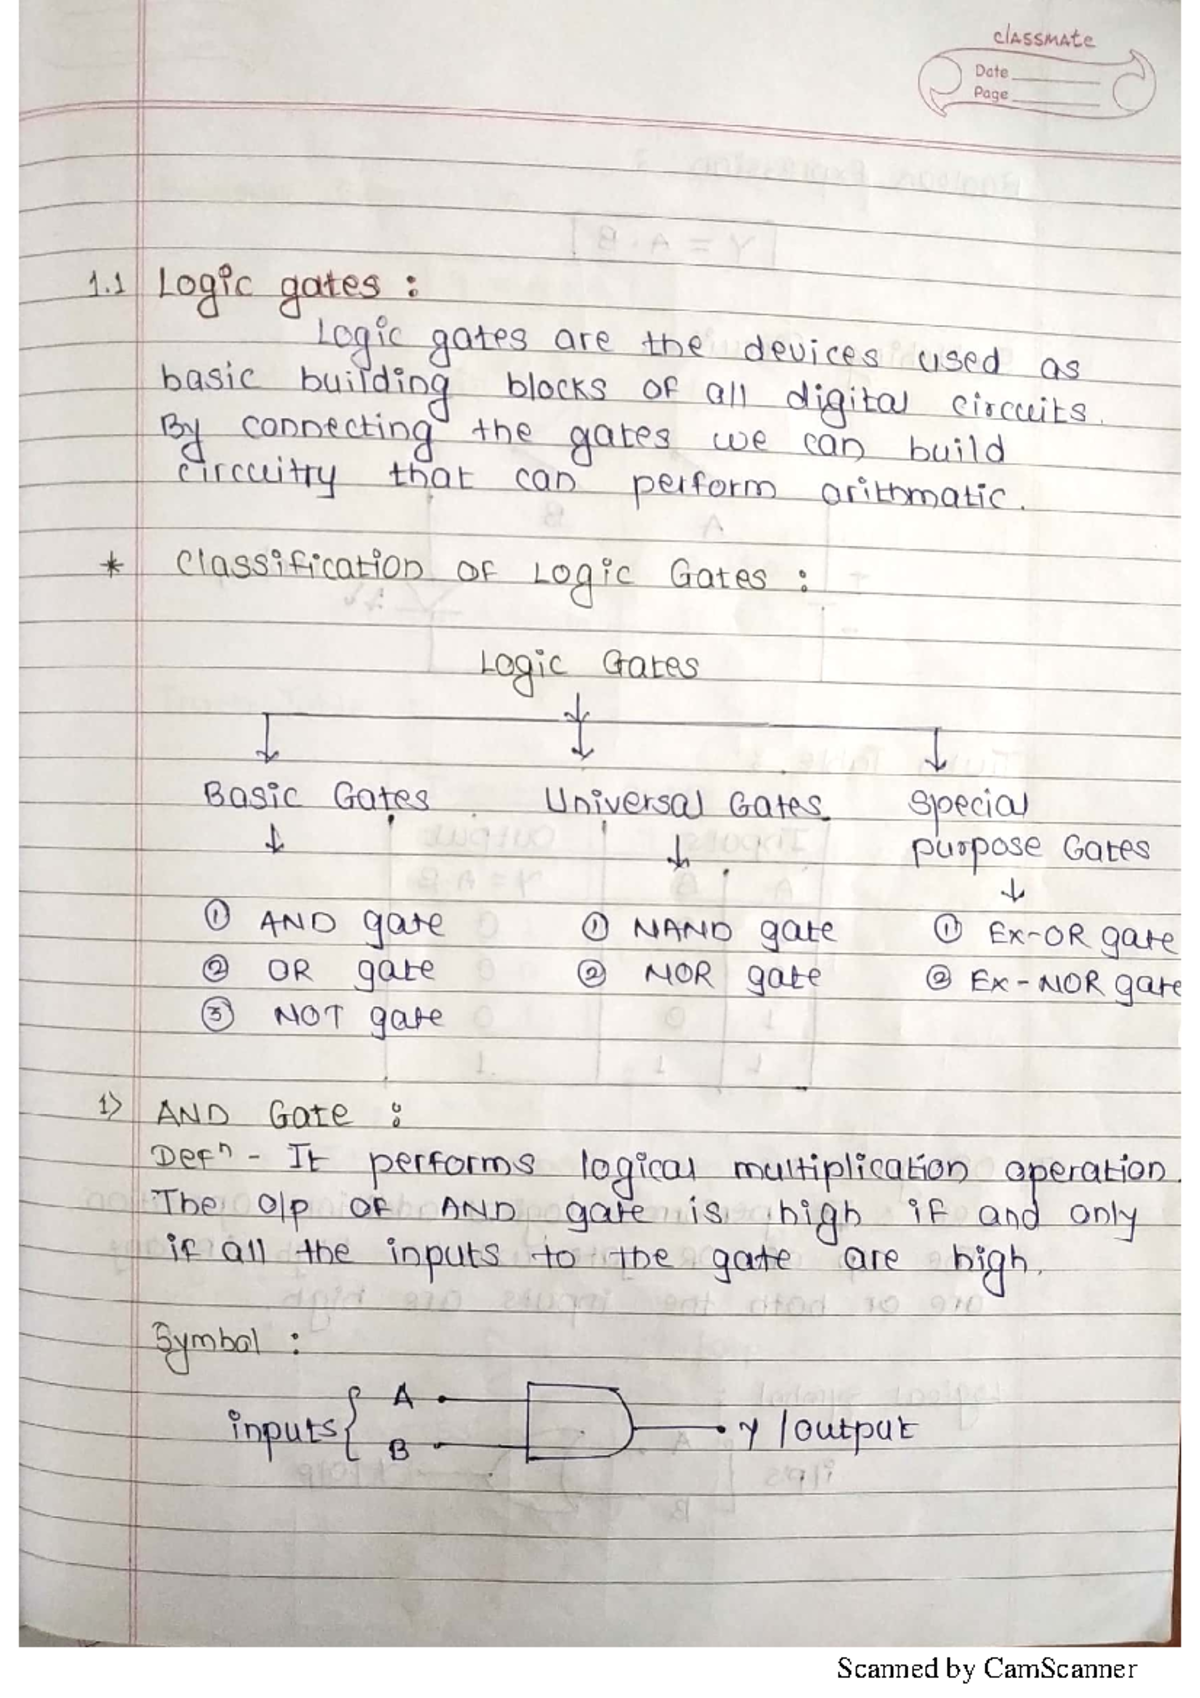 classmate
Date
Page
1.1 Logic gates :
Logic gates are the devices used as
basic building blocks of all digital circuits.
By connecting the gates we can build
circuitry that can perform arithmatic.
* Classification of Logic Gates :
Logic Gates
Basic Gates Universal Gates Special
purpose Gates
① AND gate ① NAND gate ① Ex-OR gate
② OR gate ② NOR gate ② Ex-NOR gate
③ NOT gate
1) AND Gate :
Defⁿ - It performs logical multiplication operation.
The o/p of AND gate is high if and only
if all the inputs to the gate are high.
Symbol :
A
inputs { Y / output
B
Scanned by CamScanner